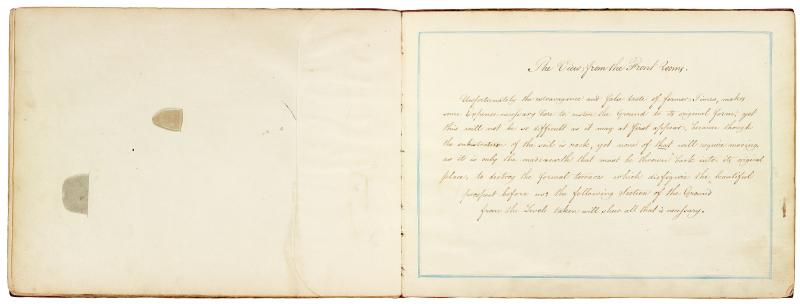 The View from the Front Rooms.
Unfortunately the extravagance and false taste of former Times, makes
some expence necessary here to restore the Ground to its original form; yet
this will not be so difficult as it may at first appear, because though
the substratum of the soil is rock, yet none of that will require moving
as it is only the made earth that must be thrown back into its original
place, to destroy the formal terrace which disfigures the beautiful
prospect before us; the following Section of the Ground
from the Levels taken will shew all that is necessary.